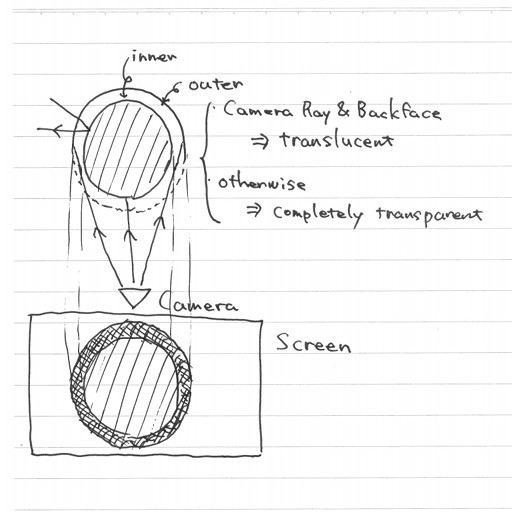 inner
outer
· Camera Ray & Backface
⇒ translucent
· otherwise
⇒ completely transparent
Camera
Screen